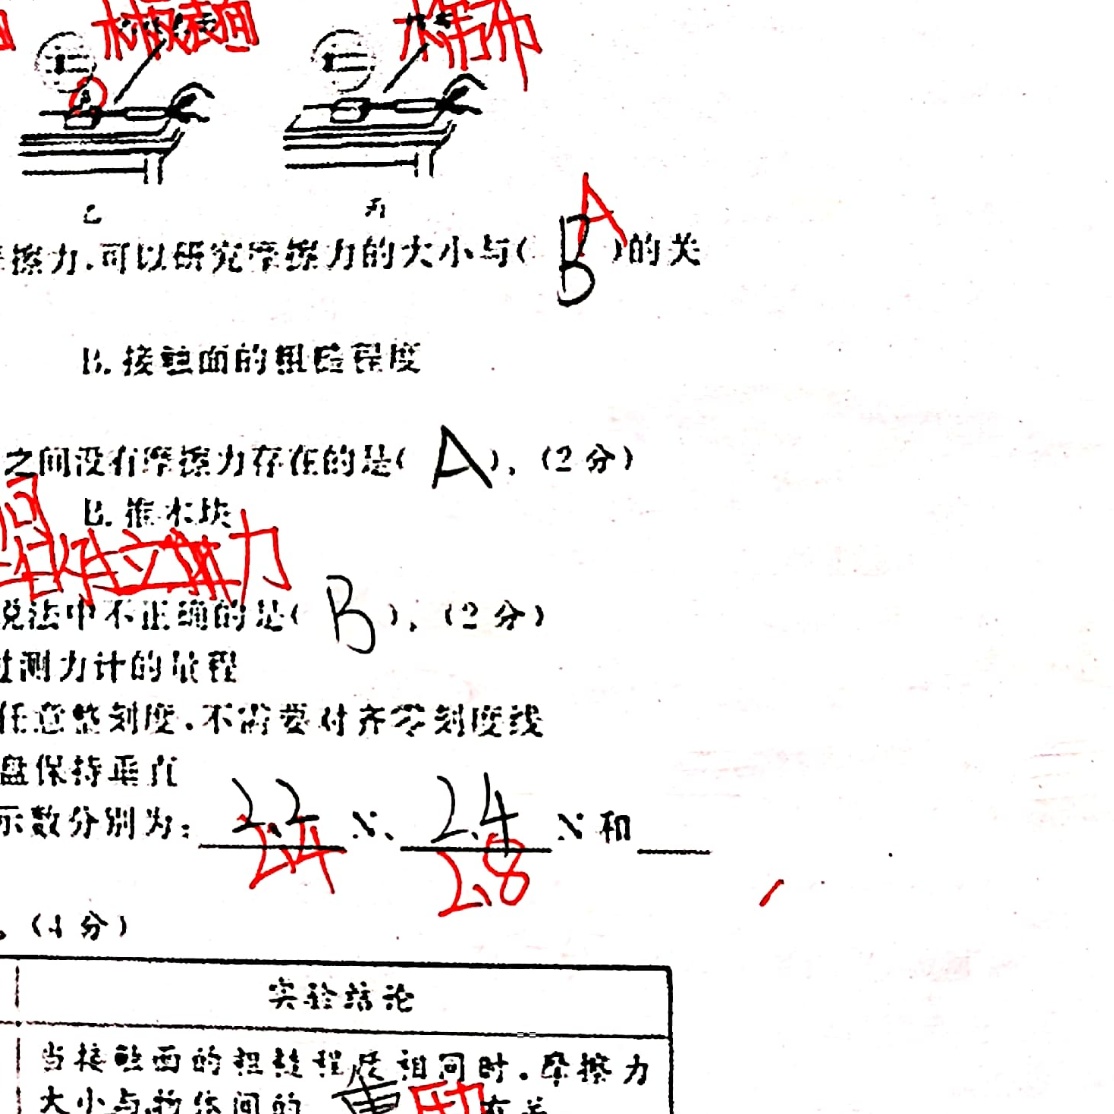 木板表面
棉布
乙 丙
擦力,可以研究摩擦力的大小与( B A )的关
B. 接触面的粗糙程度
之间没有摩擦力存在的是( A )。(2分)
B. 推木块
力
说法中不正确的是( B )。(2分)
过测力计的量程
任意整刻度,不需要对齐零刻度线
盘保持垂直
示数分别为: 2.2 N、 2.4 N 和
2.4 2.8
。(4分)
实验结论
当接触面的粗糙程度相同时,摩擦力
大小与物体间的 压力 有关